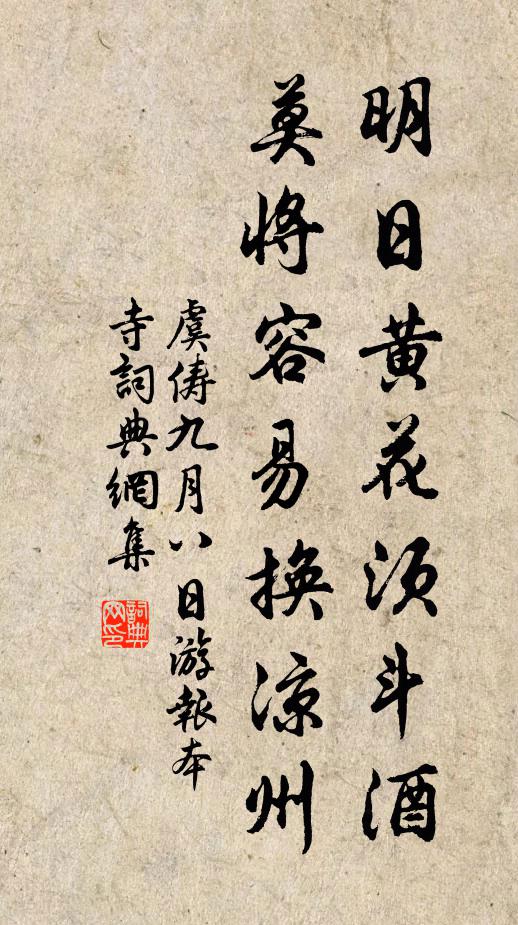 明日黄花须斗酒
莫将容易换凉州
虞俦九月八日游报本
寺词典網集
詞典网印